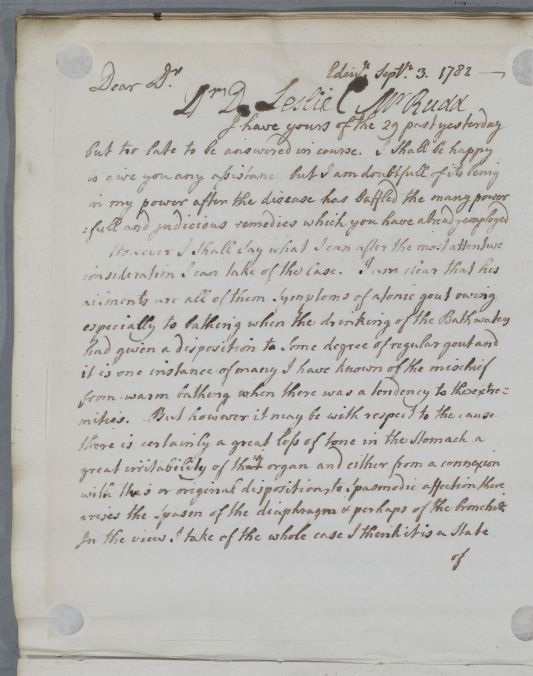 Edinr. Septr. 3. 1782
Dear Dr
Dr D. Leslie C Mr Rudd
I have yours of the 29 past yesterday
but too late to be answered in course. I shall be happy
to give you any assistance but I am doubtfull of its being
in my power after the disease has baffled the many power
:full and judicious remedies which you have already employed
However I shall say what I can after the most attentive
consideration I can take of the Case. I am clear that his
ailments are all of them symptoms of atonic gout owing
especially to bathing when the drinking of the Bath waters
had given a disposition to some degree of regular gout and
it is one instance of many I have known of the mischief
from warm bathing when there was a tendency to the extre=
mities. But however it may be with respect to the cause
there is certainly a great loss of tone in the stomach a
great irritability of that organ and either from a connexion
with this or original disposition to spasmodic affection there
arises the spasm of the diaphragm & perhaps of the bronchiæ
In the view I take of the whole case I think it is a State
of